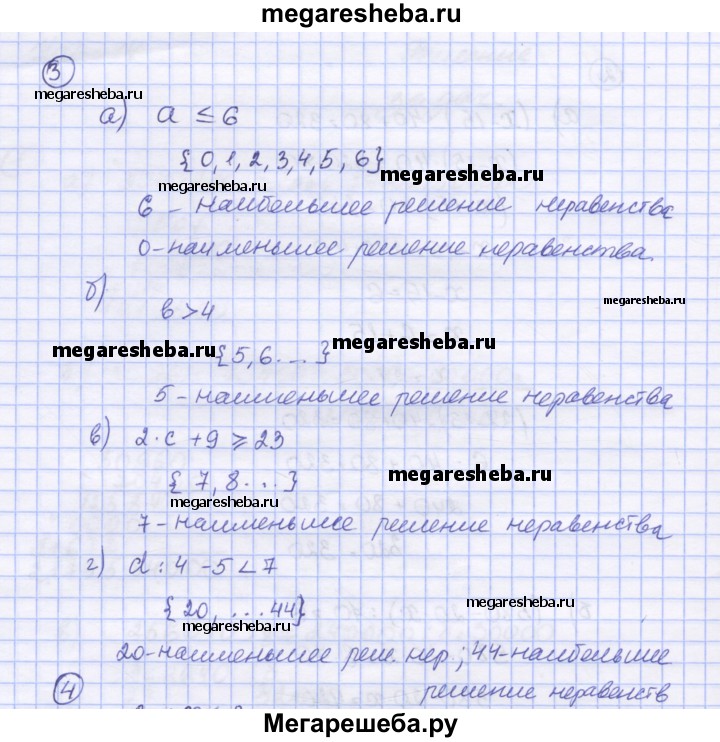 megaresheba.ru
3
megaresheba.ru
а) a ≤ 6
{0, 1, 2, 3, 4, 5, 6}
megaresheba.ru
megaresheba.ru
6 - наибольшее решение неравенства
0 - наименьшее решение неравенства.
б)
megaresheba.ru
в > 4
megaresheba.ru
megaresheba.ru
{5, 6 ... }
5 - наименьшее решение неравенства
в) 2 · c + 9 ⩾ 23
{ 7, 8 ... }
megaresheba.ru
megaresheba.ru
7 - наименьшее решение неравенства
г) d : 4 - 5 < 7
{20, ... 44}
megaresheba.ru
megaresheba.ru
20-наименьшее реш. нер.; 44-наибольшее
решение неравенств
4
Мегарешеба.ру